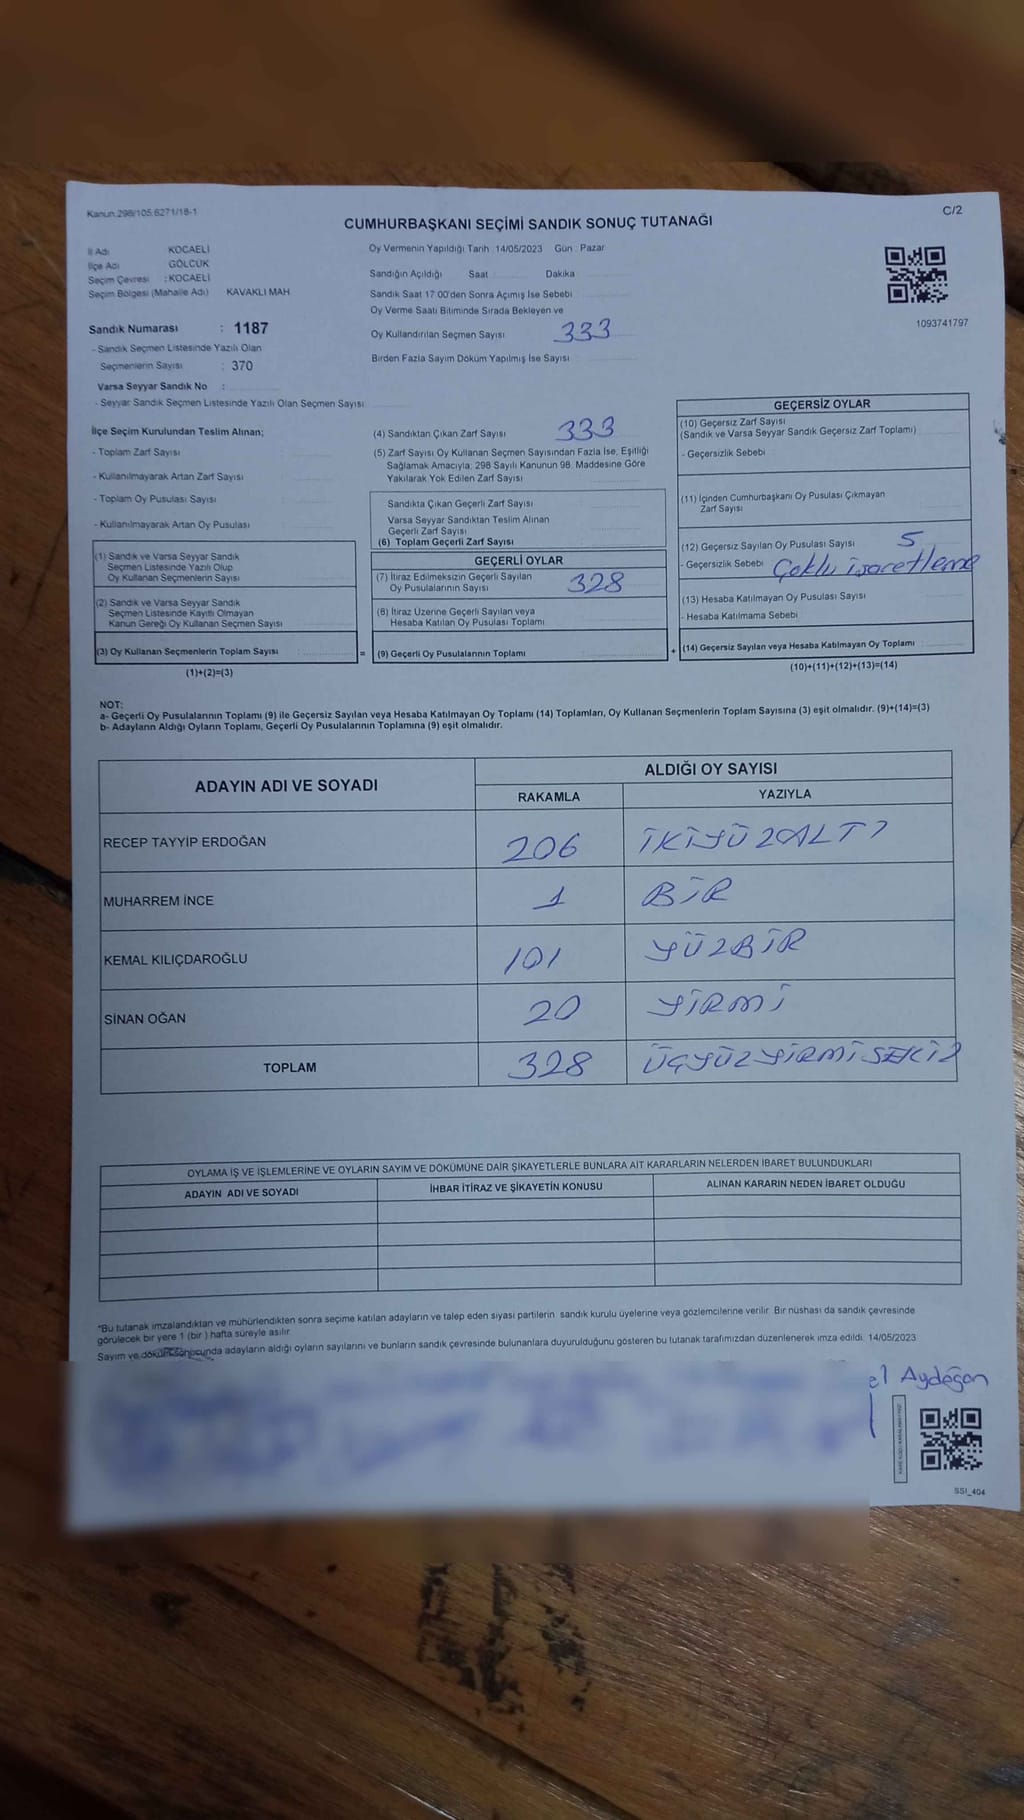 Kanun.298/105.6271/18-1
C/2
CUMHURBAŞKANI SEÇİMİ SANDIK SONUÇ TUTANAĞI
İl Adı KOCAELİ
İlçe Adı GÖLCÜK
Seçim Çevresi : KOCAELİ
Seçim Bölgesi (Mahalle Adı) KAVAKLI MAH.
Oy Vermenin Yapıldığı Tarih : 14/05/2023 Gün : Pazar
Sandığın Açıldığı Saat Dakika
Sandık Saat 17:00'den Sonra Açımış İse Sebebi
Oy Verme Saati Bitiminde Sırada Bekleyen ve
Oy Kullandırılan Seçmen Sayısı 333
Birden Fazla Sayım Döküm Yapılmış İse Sayısı
1093741797
Sandık Numarası : 1187
- Sandık Seçmen Listesinde Yazılı Olan
Seçmenlerin Sayısı : 370
Varsa Seyyar Sandık No :
- Seyyar Sandık Seçmen Listesinde Yazılı Olan Seçmen Sayısı
İlçe Seçim Kurulundan Teslim Alınan;
- Toplam Zarf Sayısı
- Kullanılmayarak Artan Zarf Sayısı
- Toplam Oy Pusulası Sayısı
- Kullanılmayarak Artan Oy Pusulası
(1) Sandık ve Varsa Seyyar Sandık
Seçmen Listesinde Yazılı Olup
Oy Kullanan Seçmenlerin Sayısı
(2) Sandık ve Varsa Seyyar Sandık
Seçmen Listesinde Kayıtlı Olmayan
Kanun Gereği Oy Kullanan Seçmen Sayısı
(3) Oy Kullanan Seçmenlerin Toplam Sayısı
(1)+(2)=(3)
(4) Sandıktan Çıkan Zarf Sayısı 333
(5) Zarf Sayısı Oy Kullanan Seçmen Sayısından Fazla İse, Eşitliği
Sağlamak Amacıyla; 298 Sayılı Kanunun 98. Maddesine Göre
Yakılarak Yok Edilen Zarf Sayısı
Sandıkta Çıkan Geçerli Zarf Sayısı
Varsa Seyyar Sandıktan Teslim Alınan
Geçerli Zarf Sayısı
(6) Toplam Geçerli Zarf Sayısı
GEÇERLİ OYLAR
(7) İtiraz Edilmeksizin Geçerli Sayılan
Oy Pusulalarının Sayısı 328
(8) İtiraz Üzerine Geçerli Sayılan veya
Hesaba Katılan Oy Pusulası Toplamı
= (9) Geçerli Oy Pusulalarının Toplamı
GEÇERSİZ OYLAR
(10) Geçersiz Zarf Sayısı
(Sandık ve Varsa Seyyar Sandık Geçersiz Zarf Toplamı)
- Geçersizlik Sebebi
(11) İçinden Cumhurbaşkanı Oy Pusulası Çıkmayan
Zarf Sayısı
(12) Geçersiz Sayılan Oy Pusulası Sayısı 5
- Geçersizlik Sebebi Çoklu işaretleme
(13) Hesaba Katılmayan Oy Pusulası Sayısı
- Hesaba Katılmama Sebebi
+ (14) Geçersiz Sayılan veya Hesaba Katılmayan Oy Toplamı
(10)+(11)+(12)+(13)=(14)
NOT:
a- Geçerli Oy Pusulalarının Toplamı (9) ile Geçersiz Sayılan veya Hesaba Katılmayan Oy Toplamı (14) Toplamları, Oy Kullanan Seçmenlerin Toplam Sayısına (3) eşit olmalıdır. (9)+(14)=(3)
b- Adayların Aldığı Oyların Toplamı, Geçerli Oy Pusulalarının Toplamına (9) eşit olmalıdır.
ADAYIN ADI VE SOYADI ALDIĞI OY SAYISI
RAKAMLA YAZIYLA
RECEP TAYYİP ERDOĞAN 206 İKİYÜZALTI
MUHARREM İNCE 1 BİR
KEMAL KILIÇDAROĞLU 101 YÜZBİR
SİNAN OĞAN 20 YİRMİ
TOPLAM 328 ÜÇYÜZYİRMİSEKİZ
OYLAMA İŞ VE İŞLEMLERİNE VE OYLARIN SAYIM VE DÖKÜMÜNE DAİR ŞİKAYETLERLE BUNLARA AİT KARARLARIN NELERDEN İBARET BULUNDUKLARI
ADAYIN ADI VE SOYADI İHBAR İTİRAZ VE ŞİKAYETİN KONUSU ALINAN KARARIN NEDEN İBARET OLDUĞU
*Bu tutanak imzalandıktan ve mühürlendikten sonra seçime katılan adayların ve talep eden siyasi partilerin sandık kurulu üyelerine veya gözlemcilerine verilir. Bir nüshası da sandık çevresinde
görülecek bir yere 1 (bir ) hafta süreyle asılır.
Sayım ve döküm sonucunda adayların aldığı oyların sayılarını ve bunların sandık çevresinde bulunanlara duyurulduğunu gösteren bu tutanak tarafımızdan düzenlenerek imza edildi. 14/05/2023
el Aydoğan
SSI_404